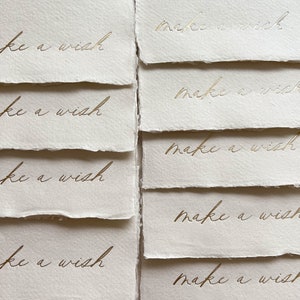 ke a wish
ke a wish
ke a wish
ke a wish
make a wish
make a wish
make a wish
make a wish
make a wish